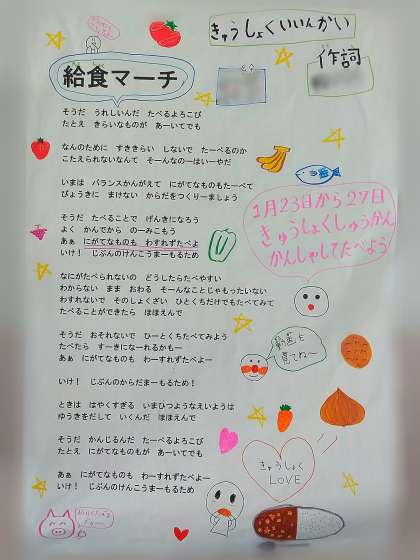 きゅうしょくいいんかい
作詞
給食マーチ
そうだ うれしいんだ たべるよろこび
たとえ きらいなものが あーいてでも
なんのために すききらい しないで たーべるのか
こたえられないなんて そーんなのーはいーやだ
いまは バランスかんがえて にがてなものもたーべて
びょうきに まけない からだをつくりーましょう
そうだ たべることで げんきになろう
よく かんでから のーみこもう
あぁ にがてなものも わすれずたべよ
いけ！ じぶんのけんこうまーもるため
1月23日から27日
きゅうしょくしゅうかん
かんしゃしてたべよう
なにがたべられないの どうしたらたべやすい
わからない まま おわる そーんなことじゃもったいない
わすれないで そのしょくざい ひとくちだけでもたべてみて
たべることができたら ほほえんで
そうだ おそれないで ひーとくちたべてみよう
たべたら すーきになーれるかもー
あぁ にがてなものも わーすれずたべよー
いけ！ じぶんのからだまーもるため！
動画を
見てね〜
ときは はやくすぎる いまひつようなえいようは
ゆうきをだして いくんだ ほほえんで
そうだ かんじるんだ たーべるよろこび
たとえ にがてなものもが あーいてでも
あぁ にがてなものも わーすれずたべよー
いけ！ じぶんのけんこうまーもるため
きゅうしょく
LOVE